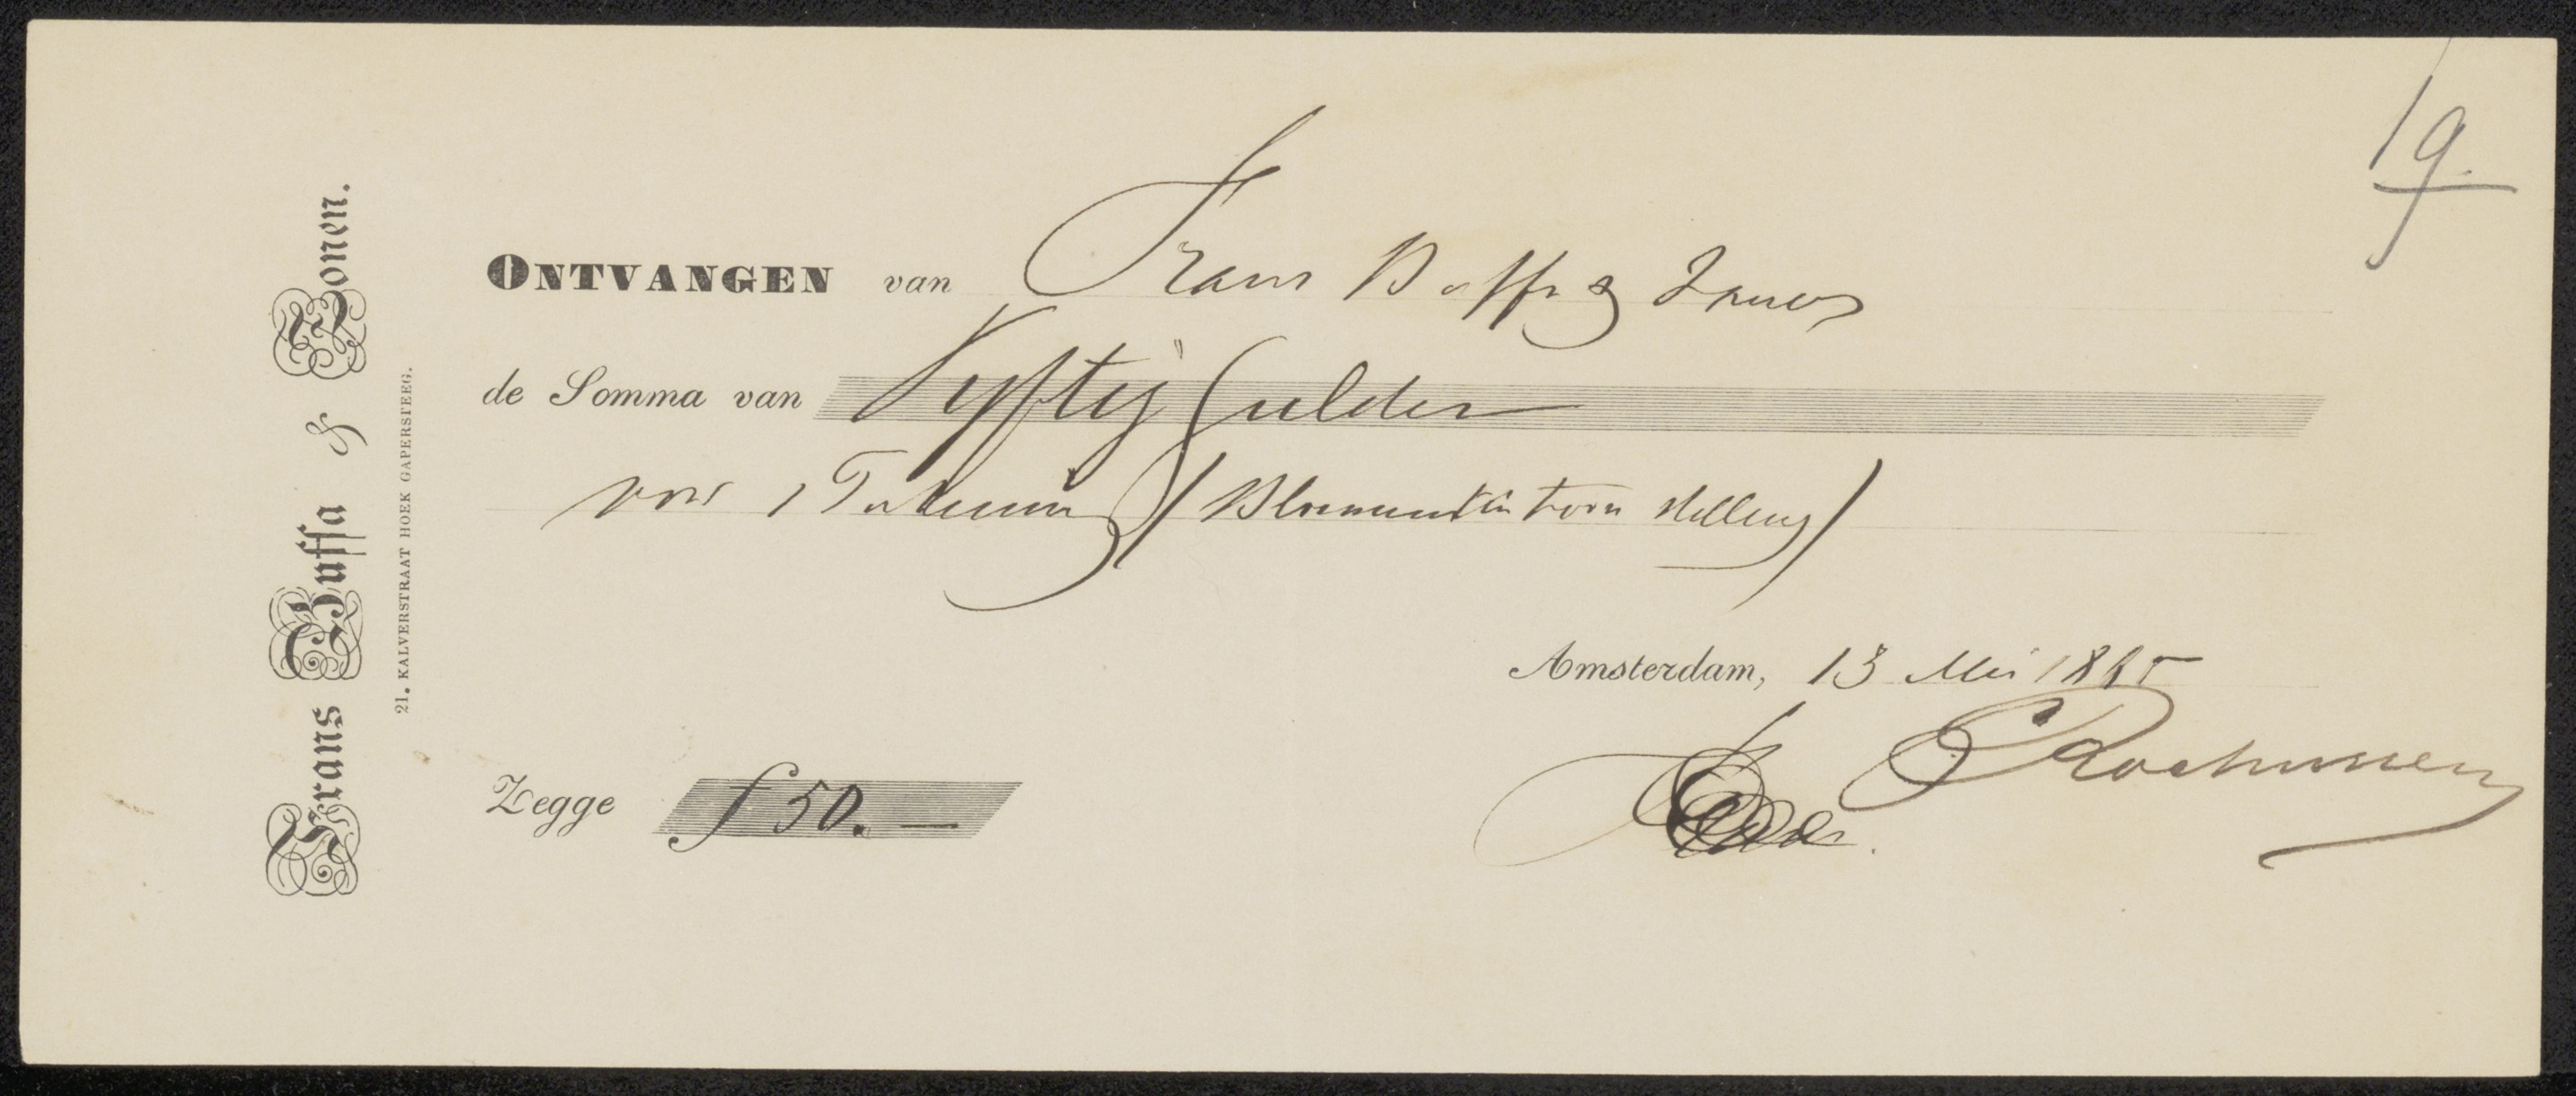 19.
Frans Buffa & Zonen.
21. KALVERSTRAAT HOEK GAPERSTEEG.
ONTVANGEN van Frans Buffa & Zonen
de Somma van Vyftig Gulden
voor 1 Tekening (Bloemententoonstelling)
Amsterdam, 13 Mei 1865
Zegge f 50. —
CRochussen